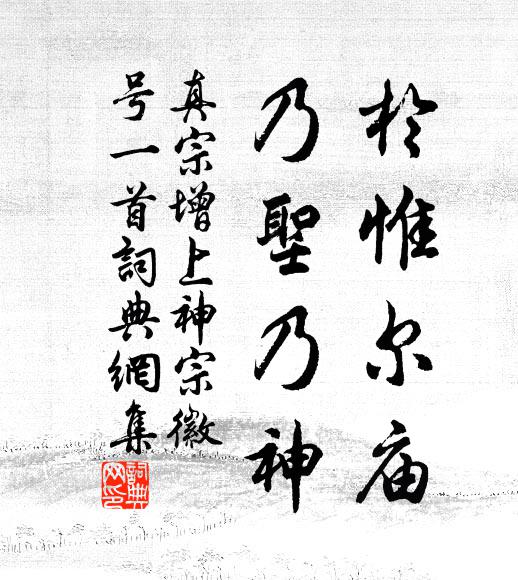 於惟尔庙
乃聖乃神
真宗增上神宗徽
号一首詞典網集
詞典网印